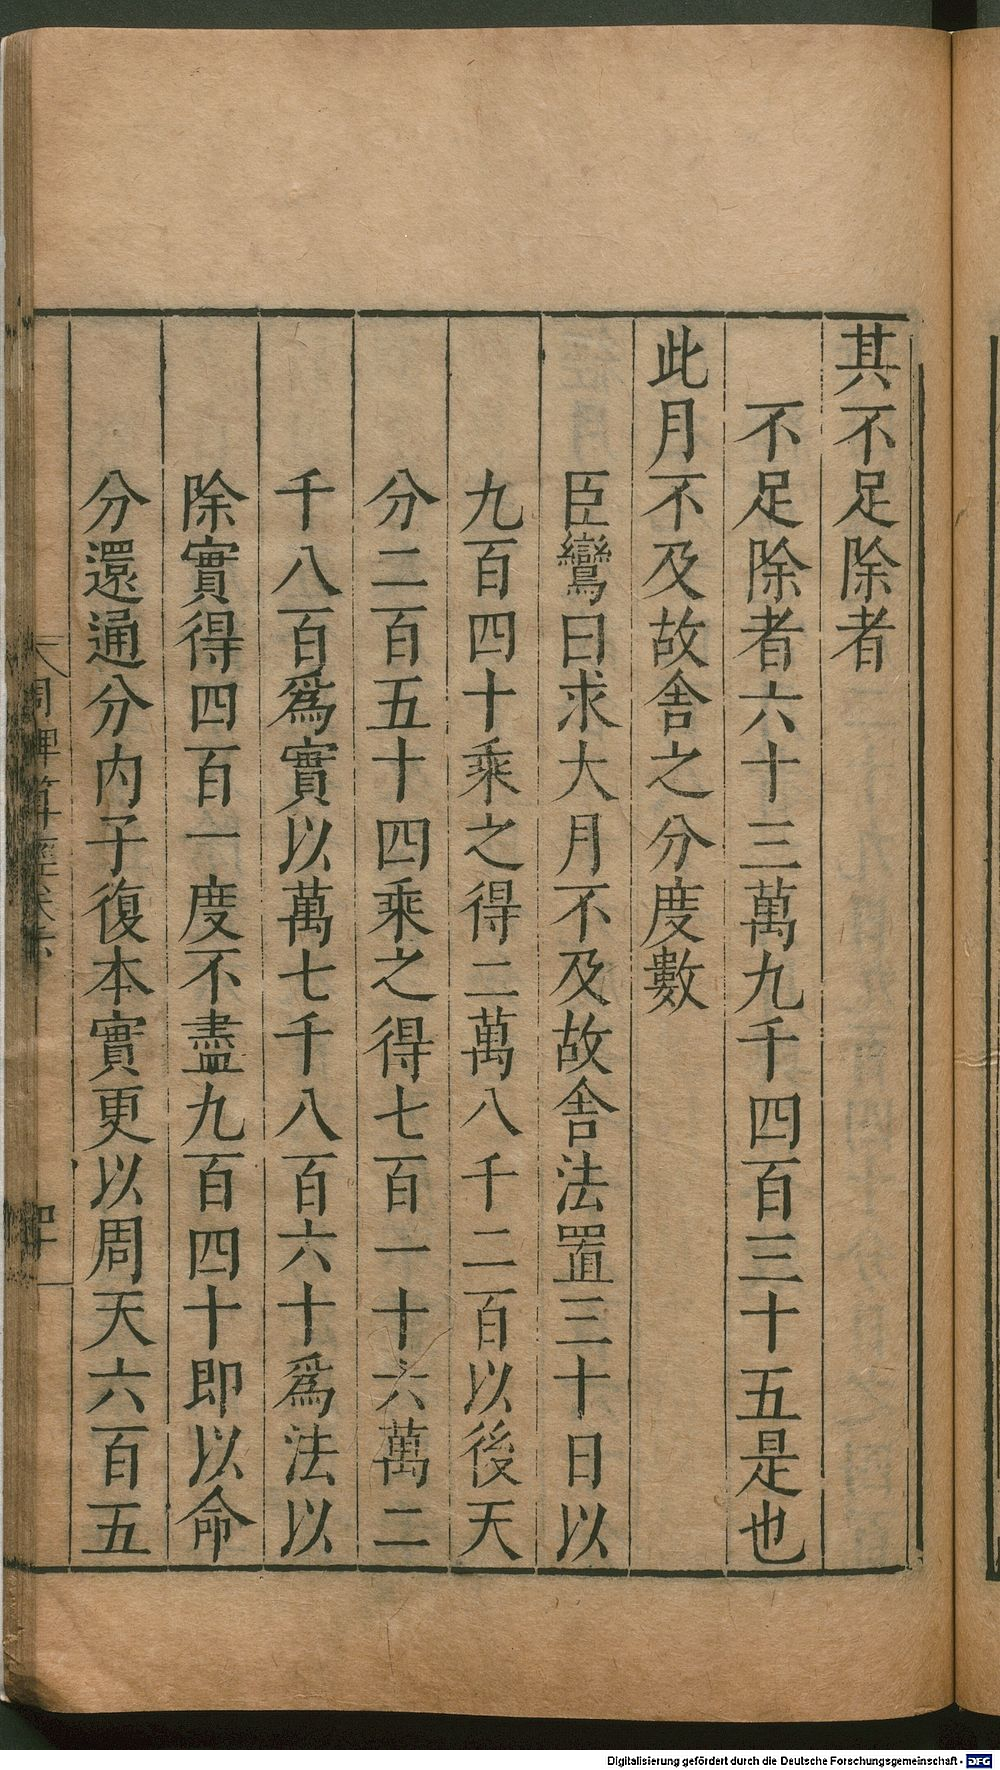 其不足除者
不足除者六十三萬九千四百三十五是也
此月不及故舍之分度數
臣鸞曰求大月不及故舍法置三十日以
九百四十乘之得二萬八千二百以後天
分二百五十四乘之得七百一十六萬二
千八百爲實以萬七千八百六十爲法以
除實得四百一度不盡九百四十即以命
分還通分内子復本實更以周天六百五
周髀算經卷
Digitalisierung gefördert durch die Deutsche Forschungsgemeinschaft - DFG